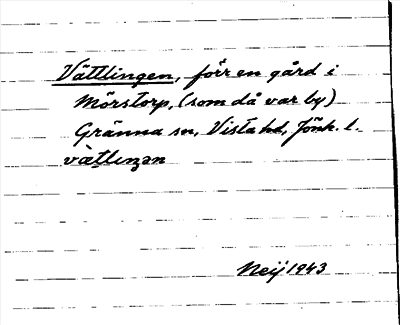 Vättlingen, förr en gård i
Mörstorp, (som då var by)
Gränna sn, Vista hd, Jönk. l.
vàtliŋən
Neij 1943